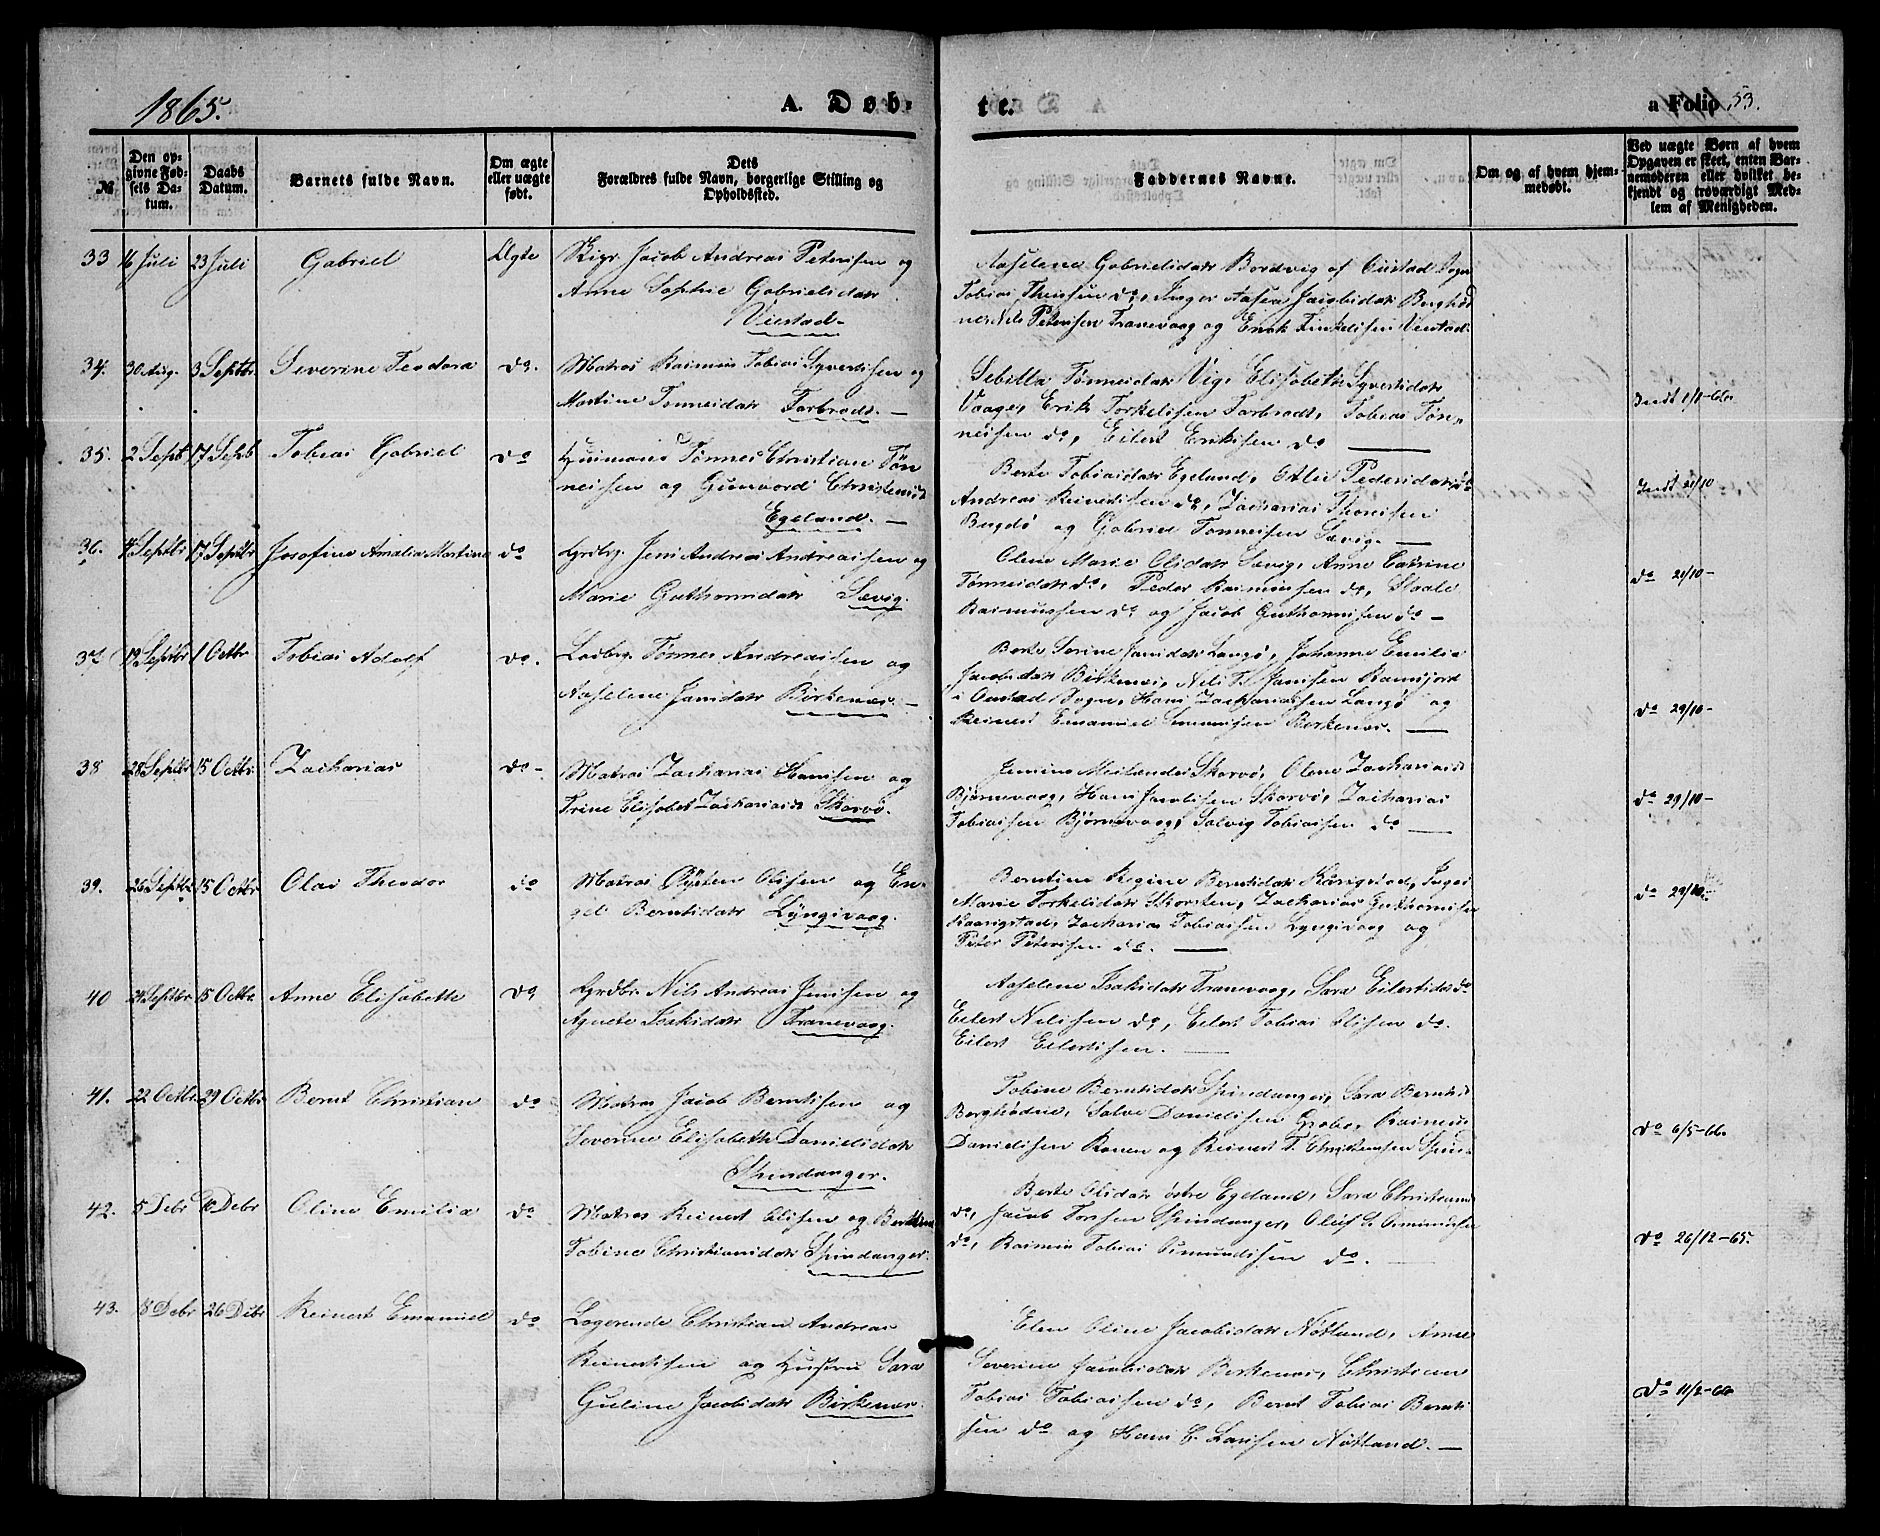 1865.
A. Døb-
te.
a Folio 53.
№
Den op-
givne Fød-
sels Da-
tum.
Daabs
Datum.
Barnets fulde Navn.
Om ægte
eller uægte
født.
Dets
Forældres fulde Navn, borgerlige Stilling og
Opholdssted.
Faddernes Navne.
Om og af hvem hjem-
medøbt.
Ved uægte Børn af hvem
Opgaven er skeet, enten Bar-
nemoderen eller hvilket be-
kjendt og troværdigt Med-
lem af Menigheden.
33 16 Juli 23 Juli Gabriel Ægte
Jacob Andreas Petersen og
Anne Sophie Gabrielsdatr
Viestad
Aaselene Gabrielsdatr Bordvig af Oustad Sogn
Tobias Theisen do, Inger Aasea Jacobsdatr Berghød
ne, Nils Petersen Tranevaag og Erik Tinkelsen Viestad
34. 30 Aug. 3 Septbr. Severine Teodora do.
Matros Rasmus Tobias Syvertsen og
Martine Tønnesdatr Farbrodt.
Sebilla Tønnesdatr Vig, Elisabeth Syvertsdatr
Vaage, Erik Torkelsen Farbrodt, Tobias Tøn-
nesen do, Eilert Eriksen do
Indt 1/1-66
35. 2 Septb 17 Septb Tobias Gabriel do
Huusmand Tønnes Christian Tøn
nesen og Gunvord Christensd
Egeland.
Berte Tobiasdatr Egeland, Otlie Pedersdatr do
Andreas Reinertsen do, Zacharias Thorsen
Bugdø og Gabriel Tønnesen Sævig.
Indt 21/10
36. 14 Septbr 17 Septbr Josefine Amalia Martine do
Grdbr. Jens Andreas Andreassen og
Marie Guthormsdatr Sævig.
Olene Marie Olsdatr Sævig, Anne Catrine
Tønnesdatr do, Peder Rasmussen do, Staale
Rasmussen do og Jacob Guthormsen do
do 21/10
37 19 Septbr 1 Octbr Tobias Adolf do.
Tønnes Andreassen og
Aaselene Jansdatr Birkenes.
Berte Serine Jansdatr Langø, Johanne Emilie
Jacobsdatr Birkenes, Nils T. Jansen Ramsjord
i Oustad Sogn, Hans Zachariassen Langø og
Reinert Emanuel Birkenes.
do 29/10
38 28 Septbr 15 Octbr. Zacharias do
Matros Zacharias Hansen og
Trine Elisabet Zachariasd Skarvø.
Skarvø, Olene Zachariasd
Bjørnevaag, Hans Jacobsen Skarvø, Zacharias
Tobiassen Bjørnevaag, Salvig Tobiassen do
do 29/10
39. 26 Septbr 15 Octbr Olai Theodor do
Matros Øysten Olsen og En-
gel Berntsdatr Lyngsvaag.
Berntine Regine Berntsdatr Kaarigstad, Inger
Marie Torkelsdatr Skarsten, Zacharias Guthormsen
Kaarigstad, Zacharias Tobiassen Lyngsvaag og
Peter Petersen do.
do 29/10
40 24 Septbr 15 Octbr Anne Elisabette do
Grdbr. Nils Andreas Jensen og
Agnete Isaksdatr Tranevaag.
Aaselene Isaksdatr Tranevaag, Sara Eilertsdatr do
Eilert Nilsen do, Eilert Tobias Olsen do.
Eilert Eilertsen.
41. 22 Octbr. 29 Octbr Bernt Christian do
Matros Jacob Berntsen og
Severine Elisabeth Danielsdatr
Spindanger.
Tobine Berntsdatr Spindanger, Sara Berntsd
Berghødne, Salve Danielsen Grobo, Rasmus
Danielsen Ronen og Reinert T. Christensen Spin
do 6/5-66.
42. 5 Debr 10 Debr Oline Emilia do
Matros Reinert Olsen og
Tobine Christiansdatr Spindanger.
Berte Olsdatr østre Egeland, Sara Christensd
do, Jacob Torsen Spindanger, Oluf S. Osmundsen
do, Rasmus Tobias Osmundsen do.
do 26/12-65.
43. 18 Debr 26 Debr Reinert Emanuel do
Logerende Christian Andreas
Reinertsen og Hustru Sara
Guline Jacobsdatr Birkenes.
Elen Oline Jacobsdatr Nøtland, Anne
Severine Jacobsdatr Birkenes, Christian
Tobias Tobiassen do, Bernt Tobias Bernt
sen do og Hans C. Larssen Nøtland.
do 11/2-66